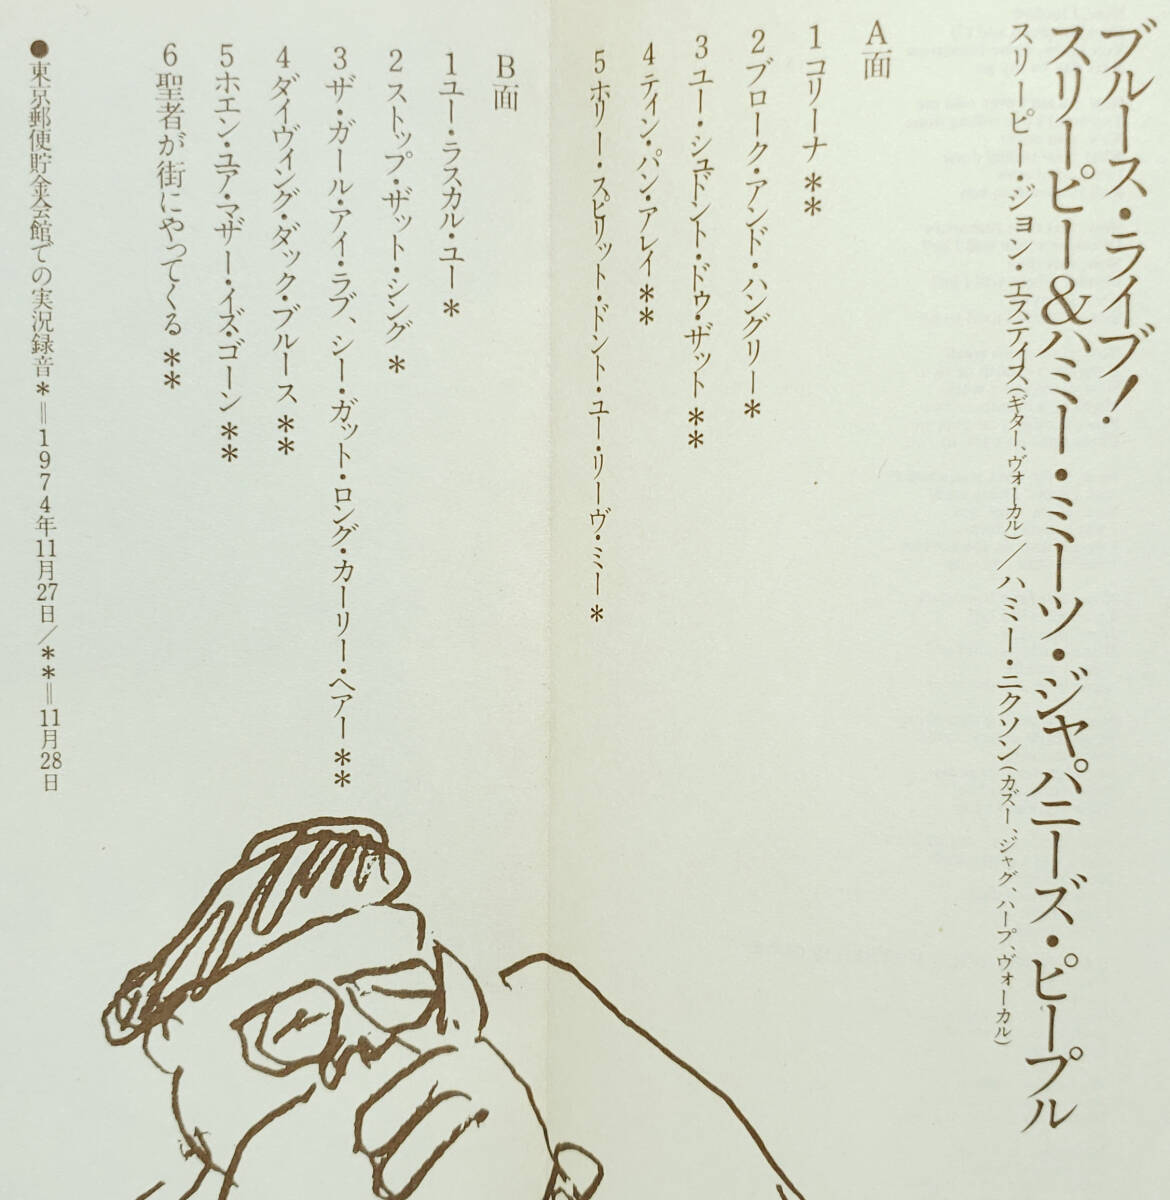 ブルース・ライブ!
スリーピー&ハミー・ミーツ・ジャパニーズ・ピープル
スリーピー・ジョン・エスティス(ギター、ヴォーカル)／ハミー・ニクソン(カズー、ジャグ、ハープ、ヴォーカル)
A面
1コリーナ＊＊
2ブローク・アンド・ハングリー＊
3ユー・シュドント・ドゥ・ザット＊＊
4ティン・パン・アレイ＊＊
5ホリー・スピリット・ドント・ユー・リーヴ・ミー＊
B面
1ユー・ラスカル・ユー＊
2ストップ・ザット・シング＊
3ザ・ガール・アイ・ラブ、シー・ガット・ロング・カーリー・ヘアー＊＊
4ダイヴィング・ダック・ブルース＊＊
5ホエン・ユア・マザー・イズ・ゴーン＊＊
6聖者が街にやってくる＊＊
●東京郵便貯金会館での実況録音＊＝1974年11月27日／＊＊＝11月28日